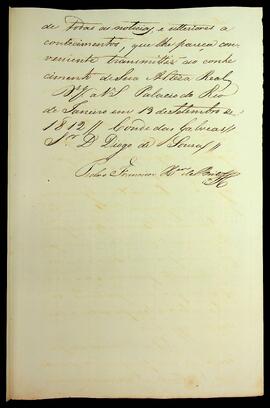 de todas as noticias e ulteriores a
conhecimentos, que lhe pareça con
veniente transmittir ao conhe
cimento de Sua Alteza Real
Ds. Ge. a V. S. Palacio do Rio
de Janeiro em 13 de Setembro de
1812 // Conde das Galveas //
Snr. D. Diogo de Souza //
Pedro Francisco